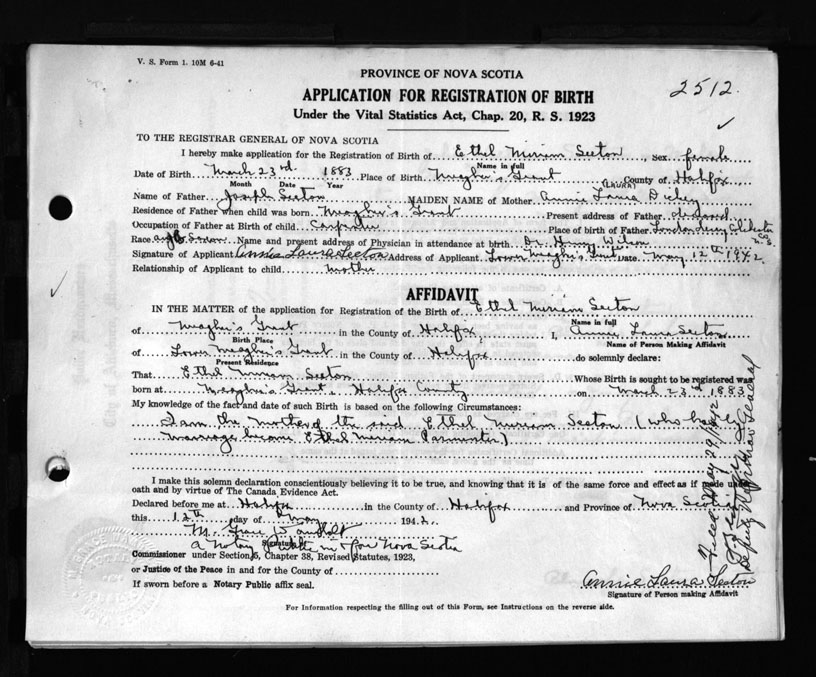 V. S. Form 1. 10M 6-41
PROVINCE OF NOVA SCOTIA
2512.
APPLICATION FOR REGISTRATION OF BIRTH
Under the Vital Statistics Act, Chap. 20, R. S. 1923
TO THE REGISTRAR GENERAL OF NOVA SCOTIA
I hereby make application for the Registration of Birth of Ethel Miriam Seeton, sex female
Name in full
Date of Birth March 23rd 1883 Place of Birth Meagher's Grant County of Halifax
Month Date Year
(LAURA)
Name of Father Joseph Seeton MAIDEN NAME of Mother Annie Laura Dickey
Residence of Father when child was born Meagher's Grant Present address of Father deceased
Occupation of Father at Birth of child Carpenter Place of birth of Father Londonderry Colchester Co.
Race Name and present address of Physician in attendance at birth Dr. Henry Wilson
Signature of Applicant Annie Laura Seeton Address of Applicant Lower Meagher's Grant Date May 12th 1942.
Relationship of Applicant to child mother
AFFIDAVIT
IN THE MATTER of the application for Registration of the Birth of Ethel Miriam Seeton
Name in full
of Meagher's Grant in the County of Halifax, I, Annie Laura Seeton
Birth Place Name of Person Making Affidavit
of Lower Meagher's Grant in the County of Halifax do solemnly declare:
Present Residence
That Ethel Miriam Seeton Whose Birth is sought to be registered was
born at Meagher's Grant, Halifax County on March 23rd 1883
My knowledge of the fact and date of such Birth is based on the following Circumstances:
I am the mother of the said Ethel Miriam Seeton (who has by
marriage become Ethel Miriam Parmenter)
I make this solemn declaration conscientiously believing it to be true, and knowing that it is of the same force and effect as if made under
oath and by virtue of The Canada Evidence Act.
Declared before me at Halifax in the County of Halifax and Province of Nova Scotia
this 12th day of May 1942.
M. Grace
Signature
A Notary Public in & for Nova Scotia
Commissioner under Section 5, Chapter 38, Revised Statutes, 1923,
or Justice of the Peace in and for the County of
If sworn before a Notary Public affix seal.
Annie Laura Seeton
Signature of Person making Affidavit
For Information respecting the filling out of this Form, see Instructions on the reverse side.
Filed May 29/1942
Deputy Registrar General